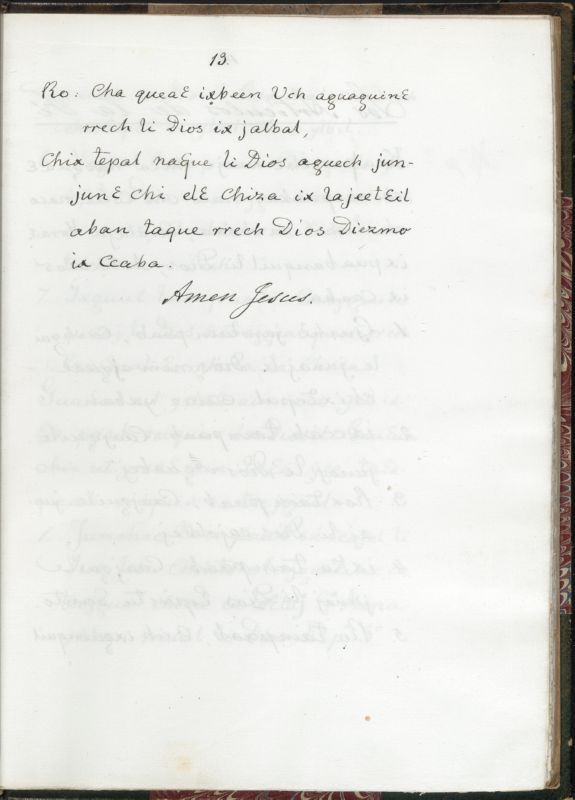 13.
Ro: Cha queaꜫ ixbeen Vch aguaguinꜫ
rrech li Dios ix jalbal,
Chix tepal naque li Dios aguech jun-
junꜫ chi elꜫ Chiza ix lajeetꜫil
aban taque rrech Dios Diezmo
ix Ccaba.
Amen Jesus.